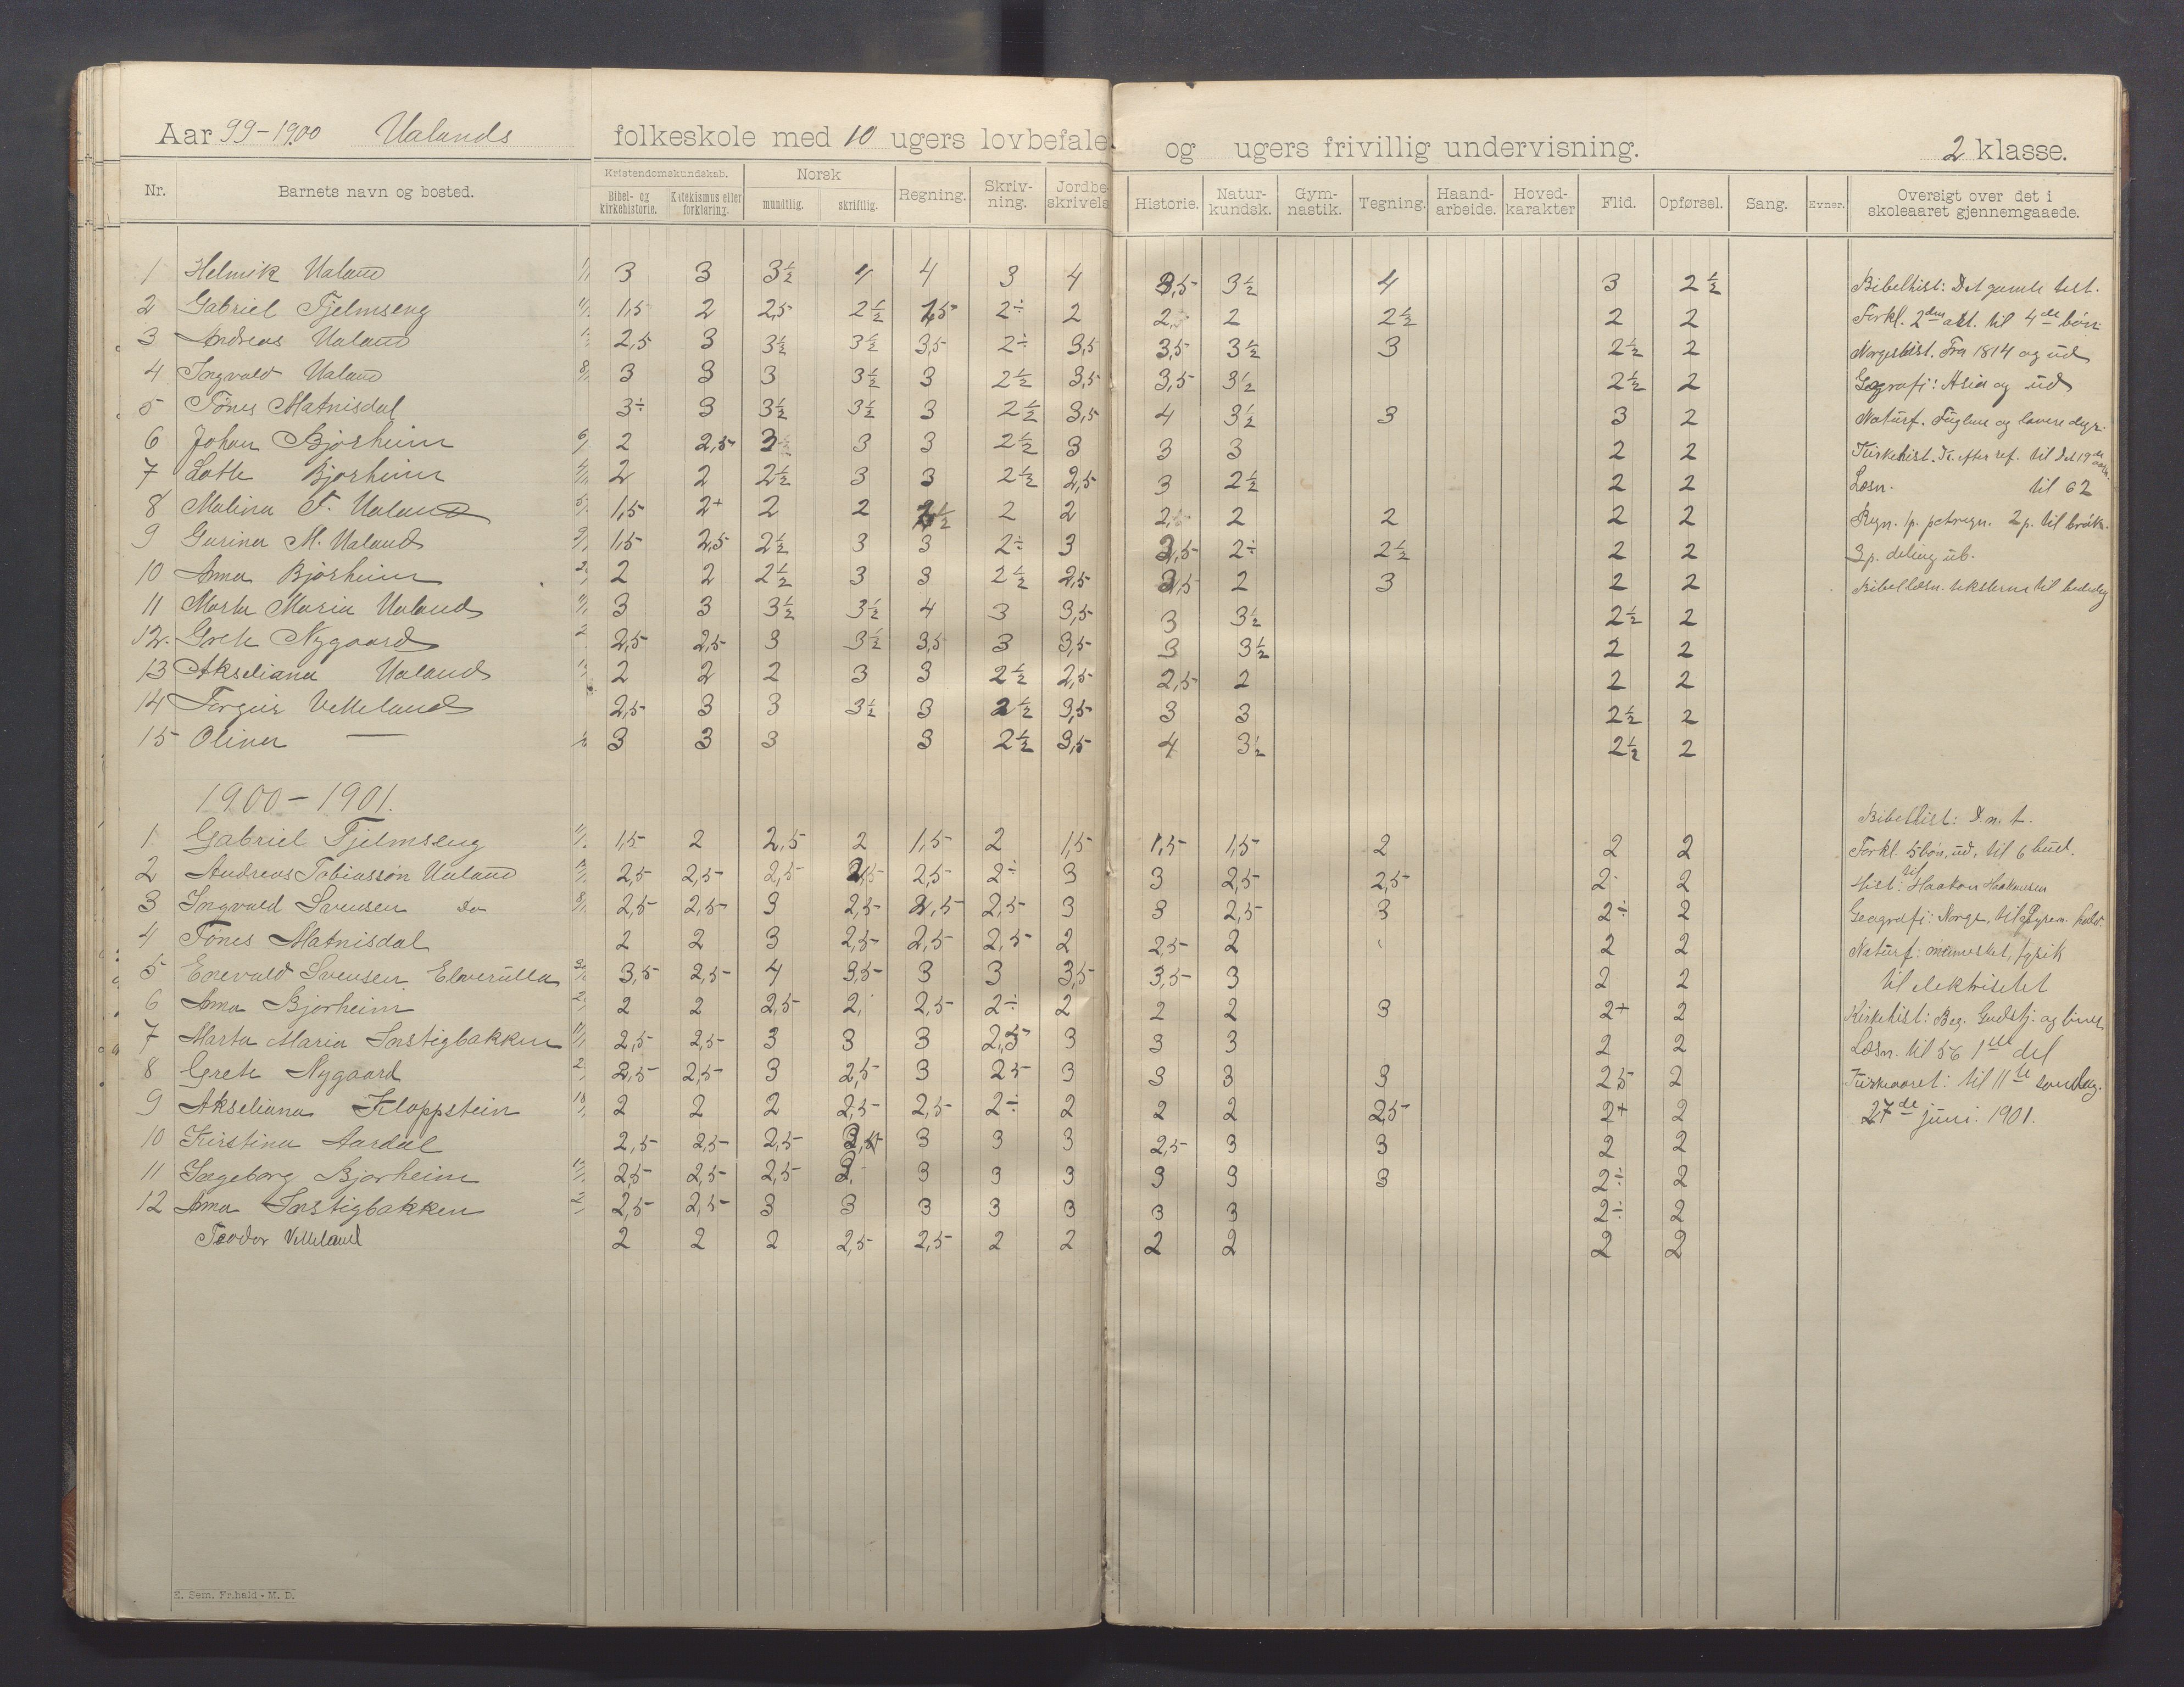 Aar 99-1900 Ualands folkeskole med 10 ugers lovbefale og ugers frivillig undervisning. 2 klasse.
Nr. Barnets navn og bosted. Kristendomskundskab. Bibel- og kirkehistorie. Katekismus eller forklaring. Norsk mundtlig. skriftlig. Regning. Skriv-ning. Jordbe skrivels Historie. Natur-kundsk. Gym-nastik. Tegning. Haand-arbeide. Hoved-karakter Flid. Opførsel. Sang. Evner. Oversigt over det i skoleaaret gjennemgaaede.
1 Helmik Ualand 3 3 3½ 4 4 3 4 3,5 3½ 4 3 2½ Bibelhist: Det gamle test.
2 Gabriel Fjelmseng 1,5 2 2,5 2½ 1,5 2÷ 2 2,5 2 2½ 2 2 Forkl. 2den art. til 4de bøn
3 Andreas Ualand 2,5 3 3½ 3½ 3,5 2÷ 3,5 3,5 3½ 3 2½ 2 Norgeshist. Fra 1814 og ud
4 Ingvald Ualand 3 3 3 3½ 3 2½ 3,5 3,5 3½ 2½ 2 Geografi: Asia og ud
5 Tønes Matnisdal 3÷ 3 3½ 3½ 3 2½ 3,5 4 3½ 3 3 2 Naturf. Fuglene og lavere dyr.
6 Johan Bjørheim 2 2,5 3½ 3 3 2½ 3 3 3 2 2 Kirkehist. Fr. efter ref. til det 19de aarh.
7 Lotte Bjørheim 2 2 2½ 3 3 2½ 2,5 3 2½ 2 2 Læsn. til 62
8 Malina T. Ualand 1,5 2+ 2 2 2½ 2 2 2,5 2 2 2 2 Regn. 1p. petregn. 2p. til brøk.
9 Gurina M. Ualand 1,5 2,5 2½ 3 3 2÷ 3 2,5 2÷ 2½ 2 2 3p. deling ub.
10 Anna Bjørheim 2 2 2½ 3 3 2½ 2,5 2,5 2 3 2 2 Bibellæsn. teksterne til bededag
11 Marta Maria Ualand 3 3 3½ 3½ 4 3 3,5 3 3½ 2½ 2
12. Grete Nygaard 2,5 2,5 3 3½ 3,5 3 3,5 3 3½ 2 2
13 Akseliana Ualand 2 2 2 3 3 2½ 2,5 2,5 2 2 2
14 Torgeir Velleland 2,5 3 3 3½ 3 2½ 3,5 3 3 2½ 2
15 Olina — 3 3 3 3 2½ 3,5 4 3½ 2½ 2
1900-1901.
Bibelhist: D. n. t.
1 Gabriel Fjelmseng 1,5 2 2,5 2 1,5 2 1,5 1,5 1,5 2 2 2 Forkl. 5 bøn, ud, til 6 bud.
2 Andreas Tobiassøn Ualand 2,5 2,5 2,5 2,5 2,5 2÷ 3 3 2,5 2,5 2 2 Hist: til Haakon Haakonsen
3 Ingvald Svensen Do 2,5 2,5 3 2,5 2,5 2,5 3 3 2,5 3 2÷ 2 Geografi: Norge, til Pyren. halv.
4 Tønes Matnisdal 2 2 3 2,5 2,5 2,5 2 2,5 2 2 2 Naturf: mennesket, fysik
5 Enevald Svensen Elverulla 3,5 2,5 4 3,5 3 3 3,5 3,5 3 2 2 til elektrisitet
6 Anna Bjørheim 2 2 2,5 2 2,5 2÷ 2 2 2 3 2+ 2 Kirkehist: Beg. Gudstj. og
7 Marta Maria Instigbakken 2,5 2,5 3 3 3 2,5 3 3 3 2 2 Læsn. til 56 1ste del
8 Grete Nygaard 2,5 2,5 3 2,5 3 2,5 3 3 3 3 2,5 2 Kirkeaaret: til 11te søndag.
9 Akseliana Kloppstein 2 2 2 2,5 2,5 2÷ 2 2 2 2,5 2+ 2 27de juni. 1901.
10 Kirstina Aardal 2,5 2,5 2,5 3 3 3 2,5 3 3 2 2
11 Ingeborg Bjørheim 2,5 2,5 2,5 3 3 3 3 3 3 3 2÷ 2
12 Anna Instigbakken 2,5 2,5 3 3 3 3 3 3 3 2÷ 2
Teodor Velleland 2 2 2 2,5 2,5 2 2 2 2 2 2
E. Sem. Fr.hald - M. D.